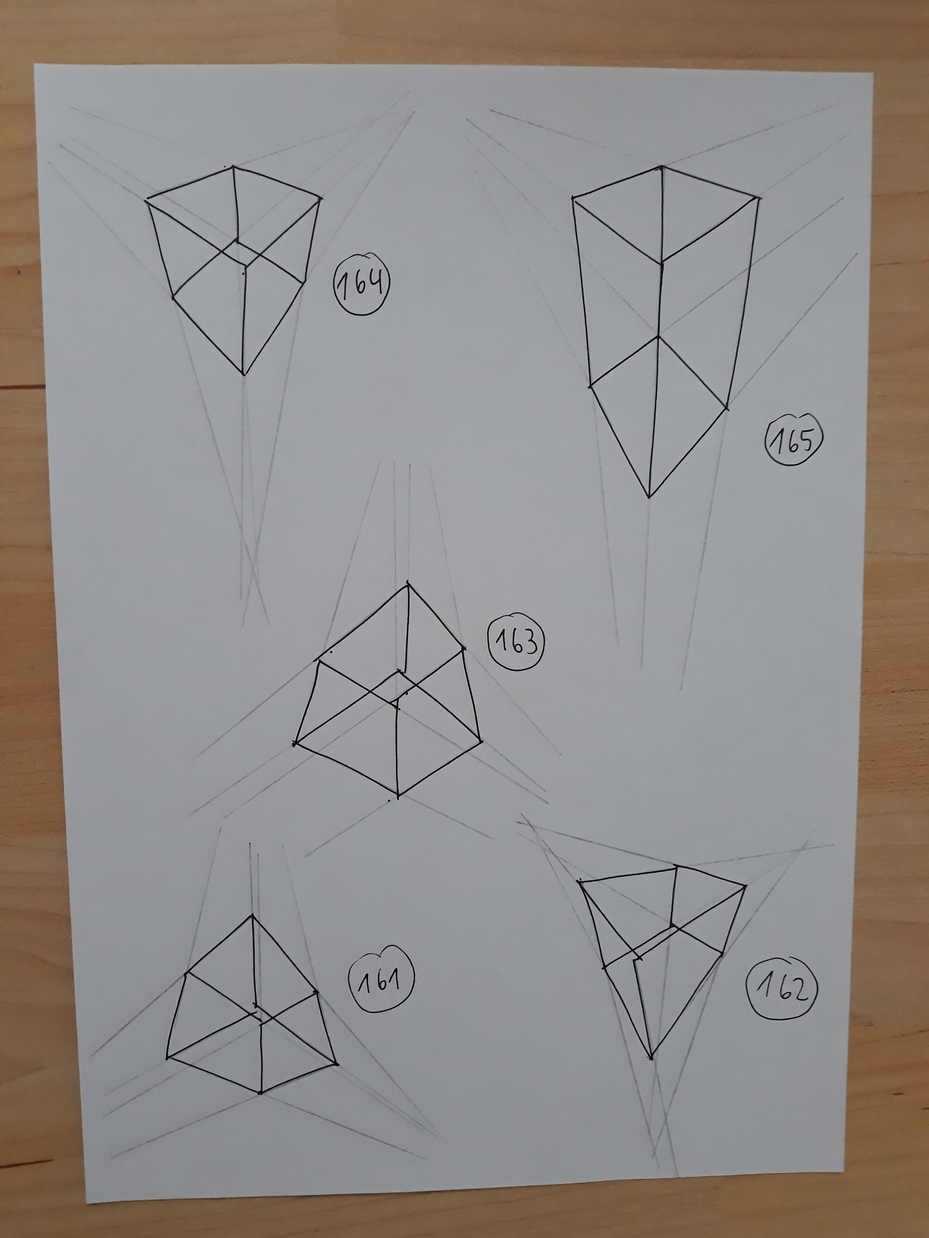 164
165
163
161
162